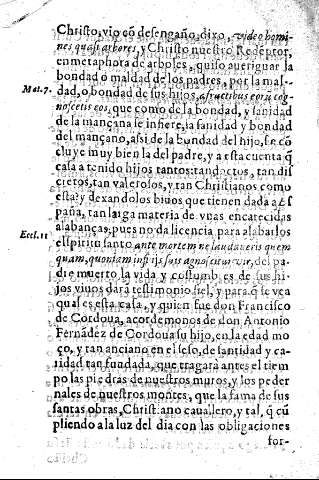 Christo, vio cõ desengaño, dixo, video homi-
nes quasi arbores, y Christo nuestro Redentor,
en metaphora de arboles, quiso aueriguar la
bondad o maldad de los padres, por la mal-
Mat. 7. dad, o bondad de sus hijos, a fructibus eorũ cog-
noscetis eos, que como de la bondad, y sanidad
de la mançana se infiere, la sanidad y bondad
del mançano, assi de la bondad del hijo, se cõ
cluye muy bien la del padre, y a esta cuenta q̃
casa a tenido hijos tantos: tan doctos, tan dis
cretos, tan valerosos, y tan Christianos como
esta? y dexandolos biuos que tienen dada a Es
paña, tan larga materia de vuas encarecidas
alabanças, pues no da licencia para alabarlos
Eccl. 11 el Spiritu santo ante mortem ne laudaueris quem
quam, quoniam in filijs suis agnoscitur vir, del pa-
dre muerto la vida y costumbres de sus hi-
jos viuos dará testimonio fiel, y para q̃ se vea
qual es esta casa, y quien fue don Francisco
de Cordoua, acordemonos de don Antonio
Fernãdez de Cordoua su hijo, en la edad mo
ço, y tan anciano en el seso, de santidad y ca-
lidad tan fundada, que tragara antes el tiem
po las piedras de nuestros muros, y los peder
nales de nuestros montes, que la fama de sus
santas obras, Christiano cauallero, y tal, q̃ cũ
pliendo a la luz del dia con las obligaciones
for-